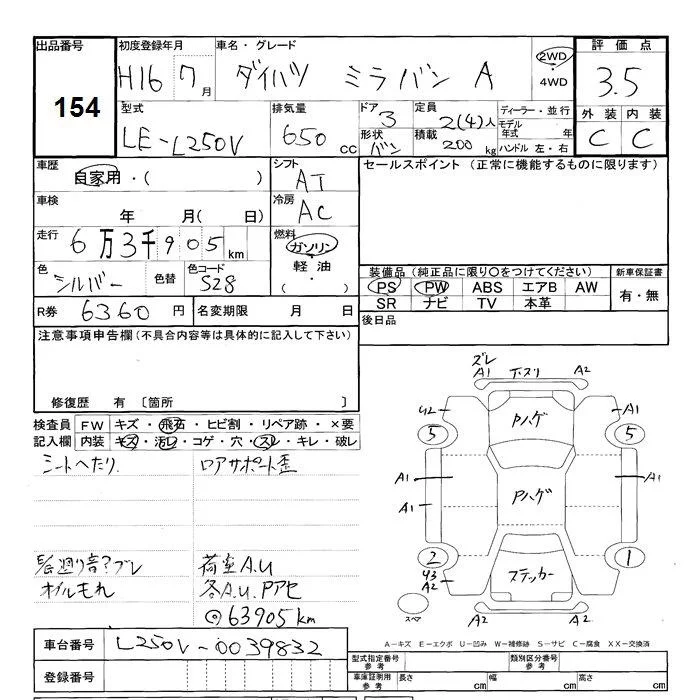 出品番号 初度登録年月 車名・グレード 評価点
154 H16 7月 ダイハツ ミラバン A 2WD・4WD 3.5
型式 排気量 ドア 定員 ディーラー・並行 外装 内装
LE-L250V 650cc 3 2(4)人 モデル年式 年 C C
形状 バン 積載 200kg ハンドル 左・右
車歴 シフト セールスポイント (正常に機能するものに限ります)
自家用・( ) AT
車検 冷房
年 月( 日) AC
走行 燃料
6万3千905km ガソリン・軽油・( )
色 色替 色コード 装備品 (純正品に限り○をつけてください) 新車保証書
シルバー S28 PS PW ABS エアB AW 有・無
SR ナビ TV 本革
R券 6360円 名変期限 月 日 後日品
注意事項申告欄(不具合内容等は具体的に記入して下さい)
修復歴 有 〔箇所 〕
検査員 FW キズ・飛石・ヒビ割・リペア跡・×要
記入欄 内装 キズ・汚レ・コゲ・穴・スレ・キレ・破レ
シートへたり ロアサポート歪
荷室A.U
オイルもれ 各A.U.Pアセ
◎63905km
ズレ
A1 A2
U2 Pハゲ A1
5 5
A1 Pハゲ A1
A1
2 1
ステッカー
A2
スペア A2 A2
A-キズ E-エクボ U-凹み W-補修跡 S-サビ C-腐食 XX-交換済
車台番号 L250V-0039832
型式指定番号 参考 類別区分番号 参考
登録番号 車庫証明用 参考 長さ cm 幅 cm 高さ cm